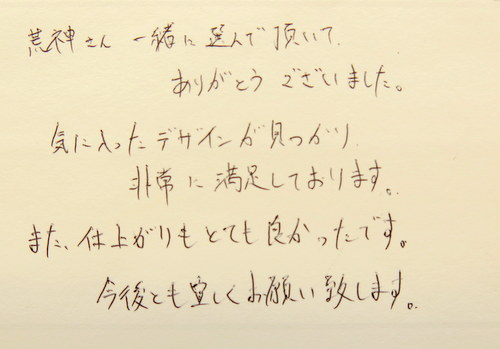 荒神さん 一緒に選んで頂いて、
ありがとう ございました。
気に入ったデザインが見つかり、
非常に満足しております。
また、仕上がりもとても良かったです。
今後とも宜しくお願い致します。